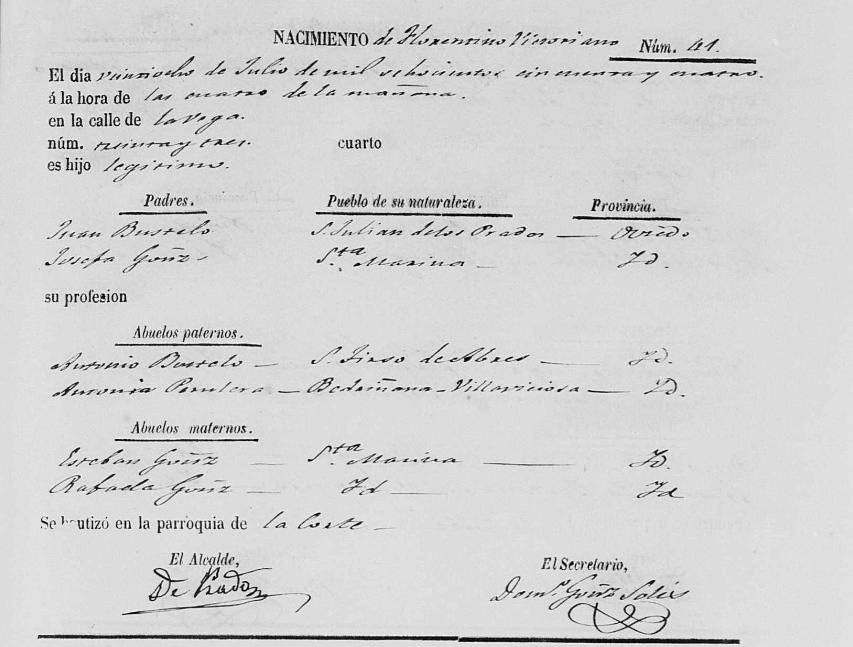 NACIMIENTO de Florentino Victoriano Núm. 41.
El dia veintiocho de Julio de mil ochocientos cincuenta y cuatro.
á la hora de las cuatro de la mañana.
en la calle de la Vega.
núm. treinta y tres. cuarto
es hijo legitimo.
Padres. Pueblo de su naturaleza. Provincia.
Juan Bustelo S. Julian de los Prados — Oviedo
Josefa Gonz Sta Marina — Id.
su profesion
Abuelos paternos.
Antonio Bustelo — S. Tirso de Abres — Id.
Antonia — Bedriñana - Villaviciosa — Id.
Abuelos maternos.
Esteban Gonz — Sta Marina — Id.
Rafaela Gonz — Id — Id
Se bautizó en la parroquia de la Corte —
El Alcalde, El Secretario,
De Prado Domo. Gonz Solis